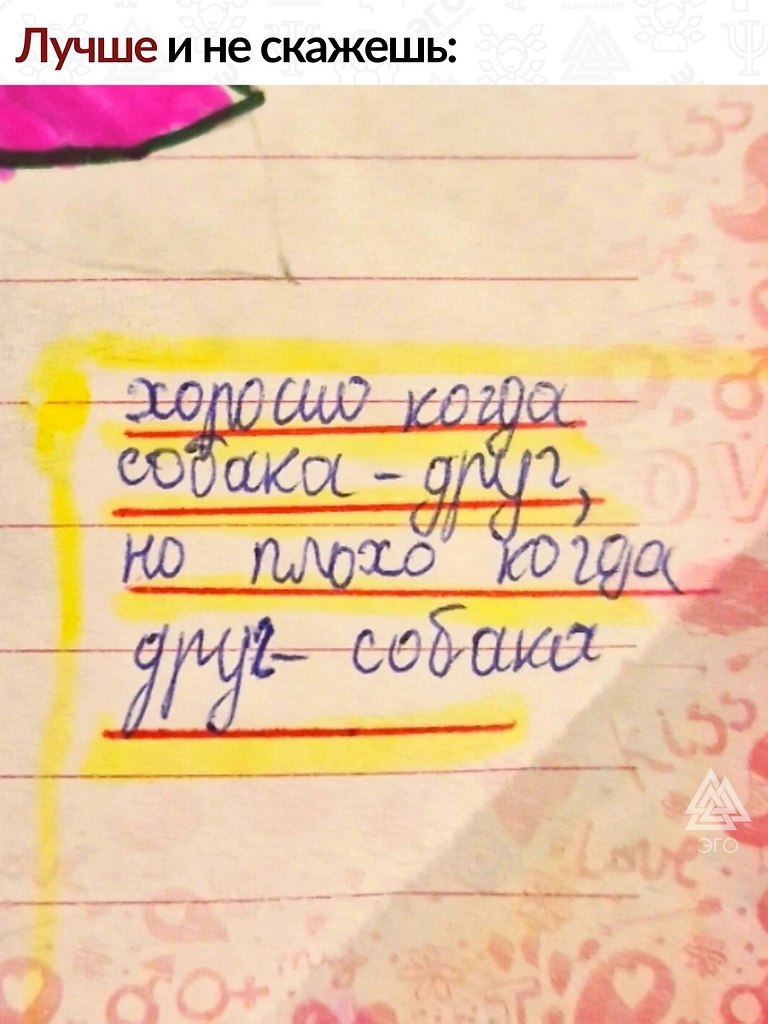 Лучше и не скажешь:
хорошо когда
собака - друг,
но плохо когда
друг - собака
kiss
love
ЭГО